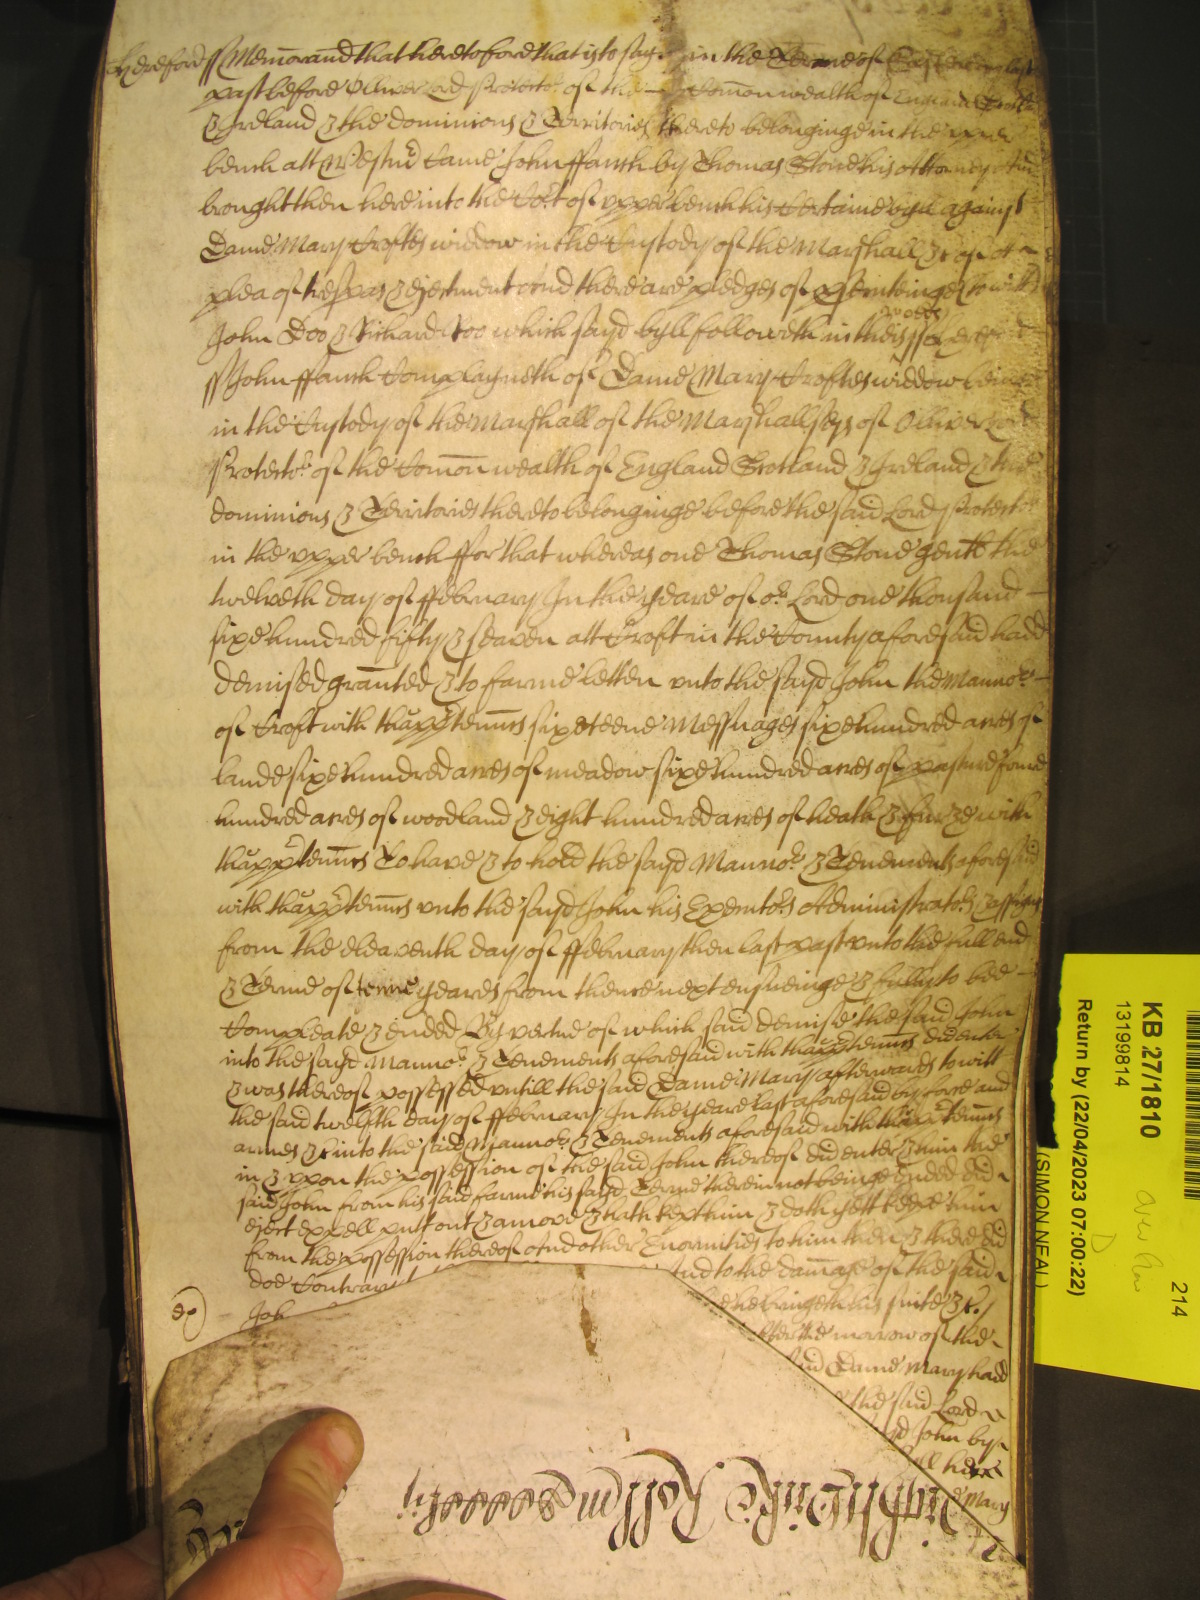 Hereford ss Memorand that heretofore that is to say in the Terme of Easter last
past before Oliver Lord Protector of the Comon wealth of England
& Ireland & the dominions & Territories thereto belonginge in the upper
bench att Westmr Came John ffanch by Thomas Stone his Attorney And
brought then here into the Cort of upper bench his Certaine byll against
Dame Mary Croftes widdow in the Custody of the Marshall &c of A
plea of trespas & ejectment And there are pledges of to witt
John Doo & Richard Roo which sayd byll followeth in theis words
ss John ffanch Complayneth of Dame Mary Croftes widdow beinge
in the Custody of the Marshall of the Marshallseys of Olliver Lord
Protector of the Comon wealth of England Scotland & Ireland & the
dominions & Territories thereto belonginge before the said Lord Protector
in the upper bench ffor that whereas one Thomas Stone gentl the
twelveth day of ffebruary In the yeare of or Lord one thousand
sixe hundred fifty & seaven att Croft in the County aforesaid hadd
demised granted & to farme letten unto the sayd John the Mannor
of Croft with thapptennces sixeteene Messuages sixe hundred acres of
lande sixe hundred acres of meadow sixe hundred acres of pasture foure
hundred acres of woodland & eight hundred acres of heath & furze with
thapptennces To have & to hold the sayd Mannor & Tenements aforesaid
with thapptennces unto the sayd John his Executors Administrators & assignes
from the eleaventh day of ffebruary then last past unto the full end
& Terme of tenne yeares from thence next ensueinge & fully to bee
Compleate & ended By vertue of which said demise the said John
into the sayd Mannor & Tenements aforesaid with thapptennces did enter
& was thereof possessed untill the said Dame Mary afterwards to witt
the said twelfth day of ffebruary In the yeare last aforesaid by force and
armes &c into the said Mannor & Tenements aforesaid with thapptennces
in & upon the possession of the said John thereof did enter & him the
said John from his said farme his sayd Terme therein not beinge ended did
eject expell putt out & amove & hath kept him & doth yett keepe him
from the possession thereof And other Enormities to him then & there did
doe Contrary And to the damage of the said
Joh he bringeth his suite &c
after the morrow of the
said Dame Mary hadd
the said Lord
sayd John by
hi
Mary
Roll
KB 27/1810
13199814
Return by (22/04/2023 07:00:22)
(SIMON NEAL)
D
214